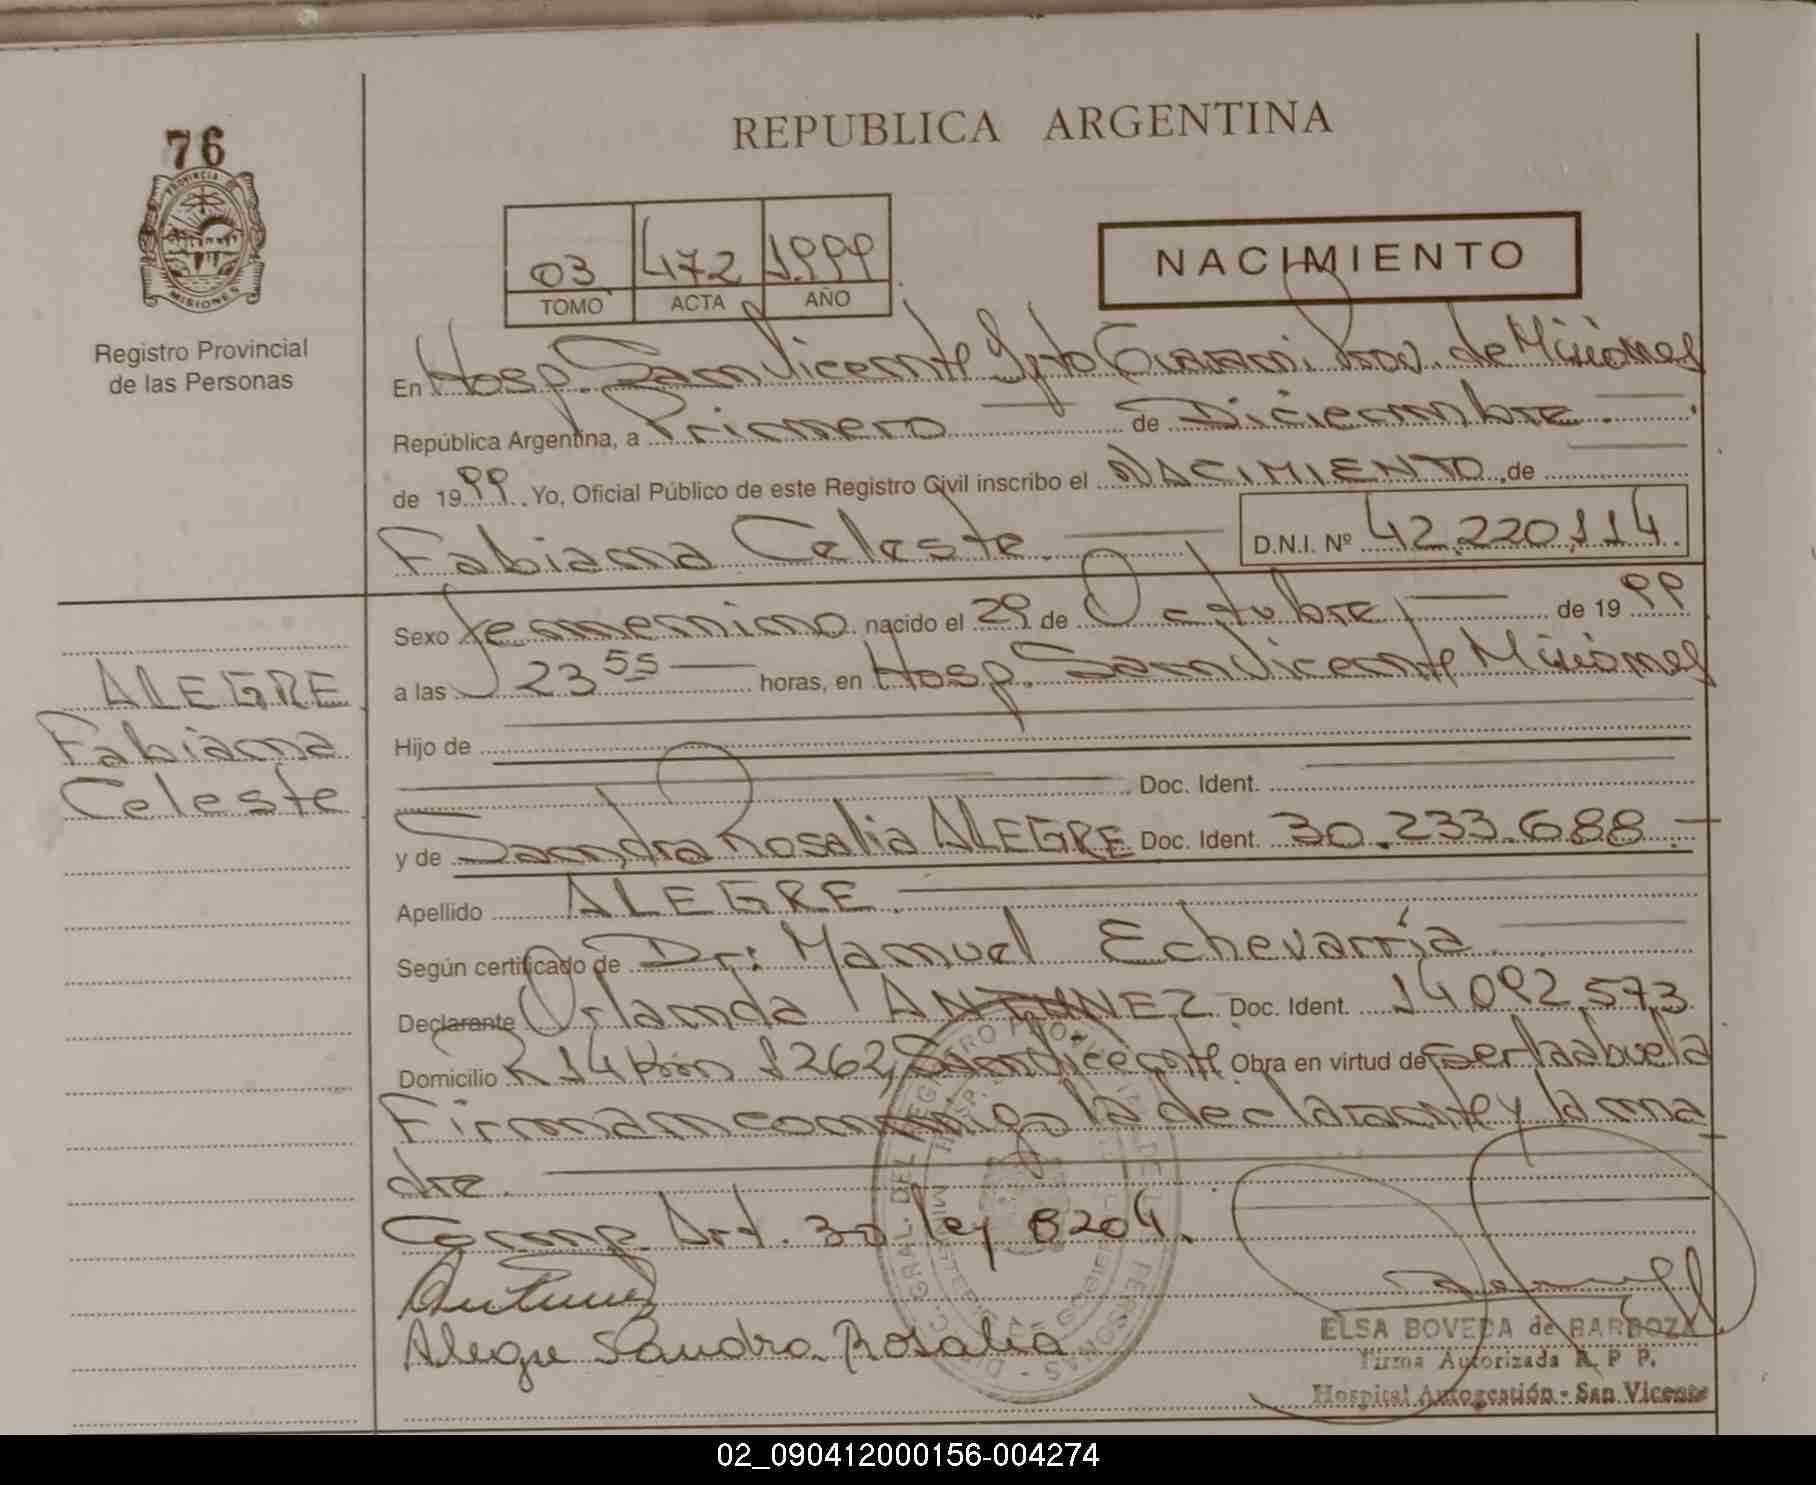 76
PROVINCIA DE
MISIONES
Registro Provincial
de las Personas
REPUBLICA ARGENTINA
03 472 1999
TOMO ACTA AÑO
NACIMIENTO
En Hosp. San Vicente Dpto Guarani Prov. de Misiones
República Argentina, a Primero de Diciembre
de 1999. Yo, Oficial Público de este Registro Civil inscribo el NACIMIENTO de
Fabiana Celeste D.N.I. Nº 42.220.114
Sexo femenino nacido el 29 de Octubre de 1999
a las 23 55 horas, en Hosp. San Vicente Misiones
Hijo de
Doc. Ident.
y de Sandra Rosalia ALEGRE Doc. Ident. 30.233.688
Apellido ALEGRE
Según certificado de Dr: Manuel Echevarría
Declarante Orlanda ANTUNEZ Doc. Ident. 14.092.573
Domicilio R 14 Km 1262 San Vicente Obra en virtud de ser la abuela
Firman conmigo la declarante y la ma
dre.
Comp. Art. 30 ley 8204.
Antunez
Alegre Sandra Rosalia
ALEGRE
Fabiana
Celeste
ELSA BOVEDA de BARBOZA
Firma Autorizada R. P. P.
Hospital Autogestión - San Vicente
02_090412000156-004274